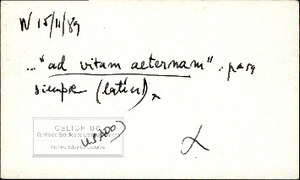 N 15/11/89
... "ad vitam aeternam". para
siempre (latín)
USADO
CELICH UC